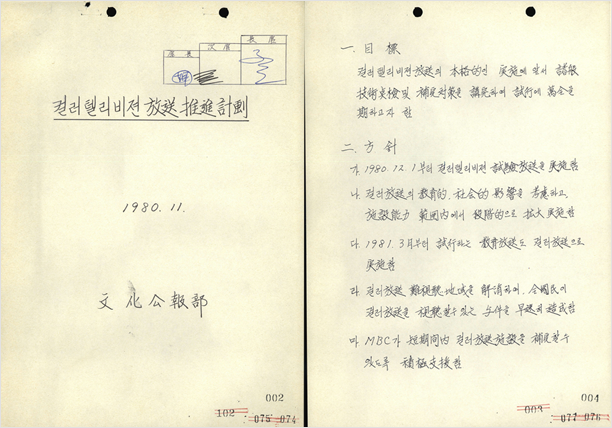 局長 次官 長官
컬러텔리비젼 放送 推進計劃
1980. 11.
文化公報部
002
102 075 074
一. 目標
컬러텔리비젼放送의 本格的인 實施에 앞서 諸般
技術実驗 및 補完対策을 講究하여 試行에 萬全을
期하고자 함
二. 方針
가. 1980.12.1부터 컬러텔리비젼 試驗放送을 実施함
나. 컬러放送의 教育的, 社会的 影響을 考慮하고,
施設能力 範囲内에서 段階的으로 拡大 実施함
다. 1981. 3月부터 試行하는 教育放送도 컬러放送으로
実施함
라. 컬러放送 難視聴地域을 解消하여, 全國民이
컬러放送을 視聴할수 있는 与件을 早速히 造成함
마. MBC가 短期間内 컬러放送施設을 補完할수
있도록 積極支援함
004
003
077 076